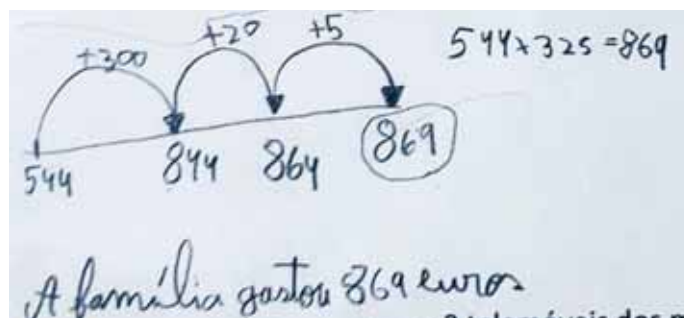 +300 +20 +5 544+325=869
544 844 864 869
A família gastou 869 euros